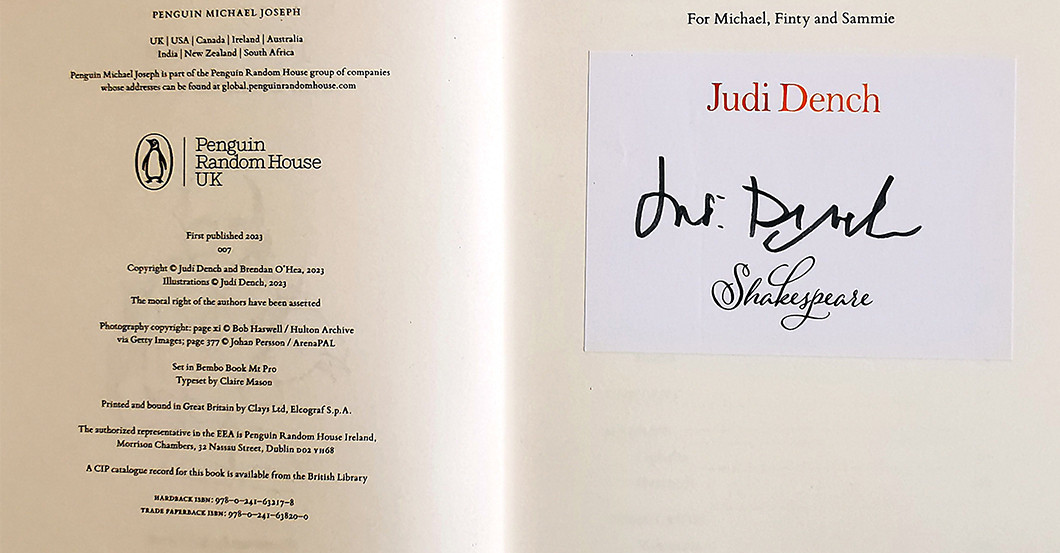 PENGUIN MICHAEL JOSEPH
UK | USA | Canada | Ireland | Australia
India | New Zealand | South Africa
Penguin Michael Joseph is part of the Penguin Random House group of companies
whose addresses can be found at global.penguinrandomhouse.com
Penguin
Random House
UK
First published 2023
007
Copyright © Judi Dench and Brendan O'Hea, 2023
Illustrations © Judi Dench, 2023
The moral right of the authors have been asserted
Photography copyright: page xi © Bob Haswell / Hulton Archive
via Getty Images; page 377 © Johan Persson / ArenaPAL
Set in Bembo Book Mt Pro
Typeset by Claire Mason
Printed and bound in Great Britain by Clays Ltd, Elcograf S.p.A.
The authorized representative in the EEA is Penguin Random House Ireland,
Morrison Chambers, 32 Nassau Street, Dublin D02 YH68
A CIP catalogue record for this book is available from the British Library
HARDBACK ISBN: 978-0-241-63217-8
TRADE PAPERBACK ISBN: 978-0-241-63820-0
For Michael, Finty and Sammie
Judi Dench
Judi Dench
Shakespeare